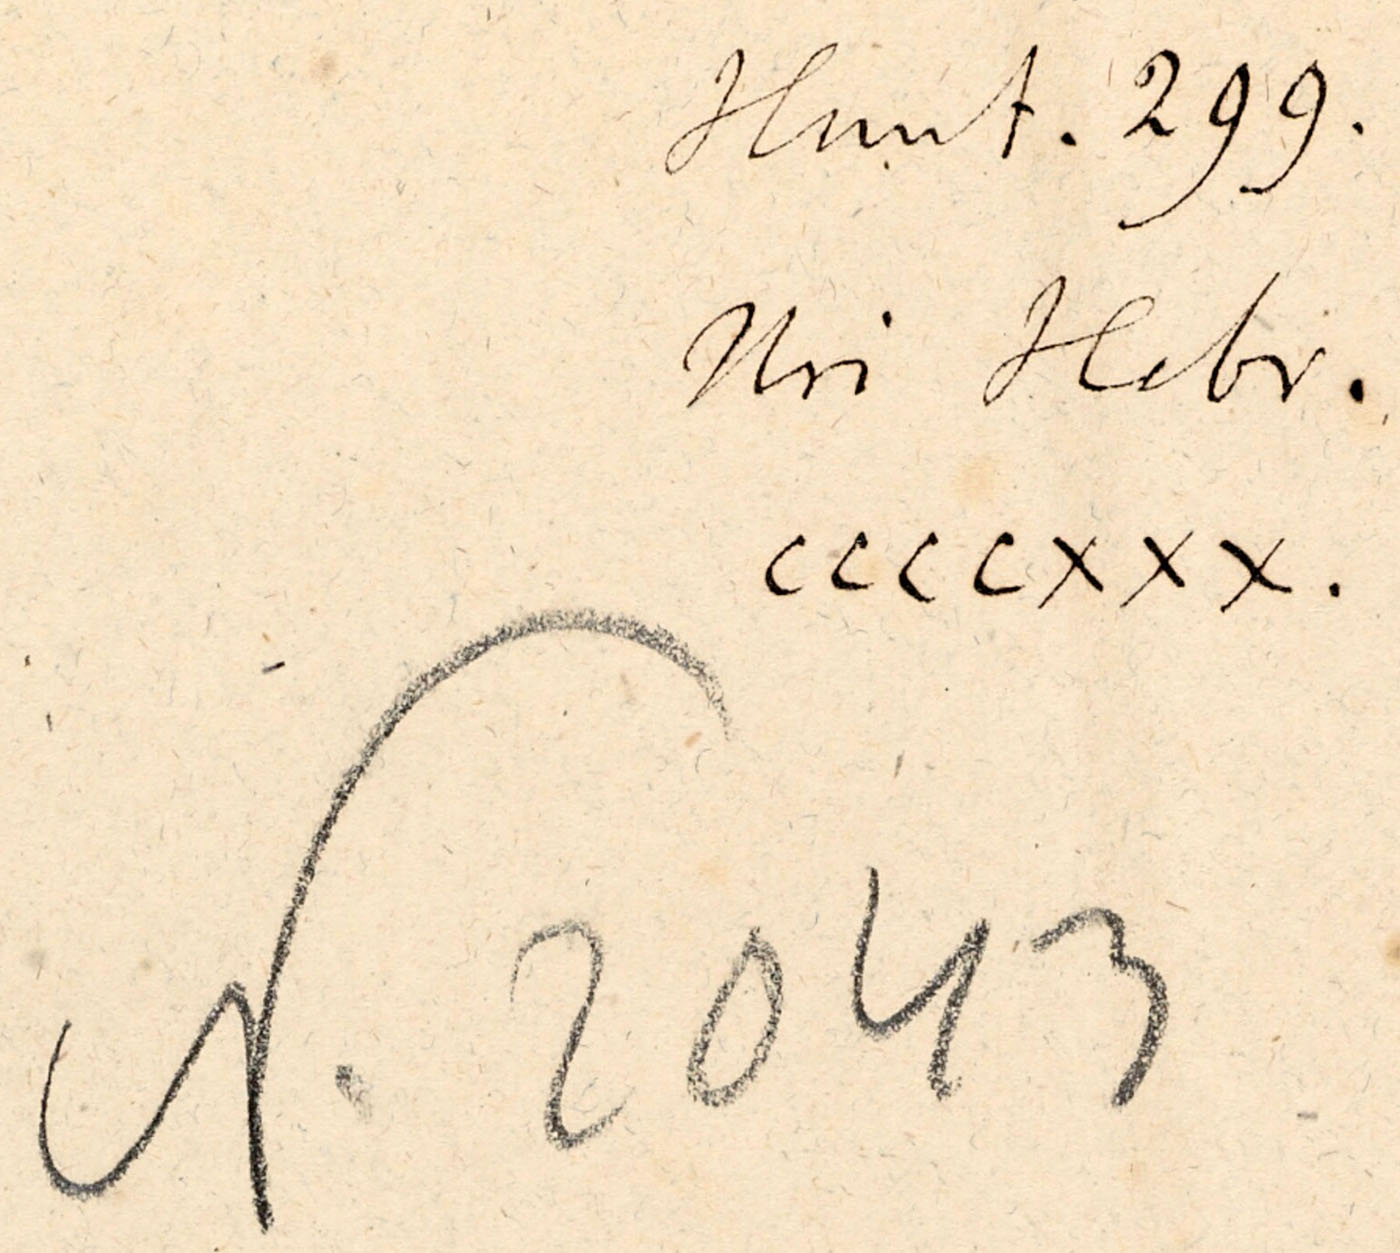 Hunt. 299.
Uri Hebr.
ccccxxx.
N. 2043